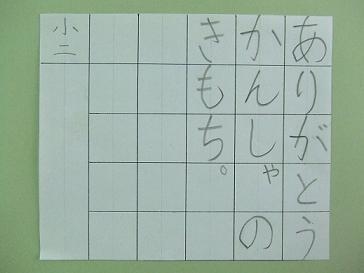 ありがとう
かんしゃの
きもち。
小二